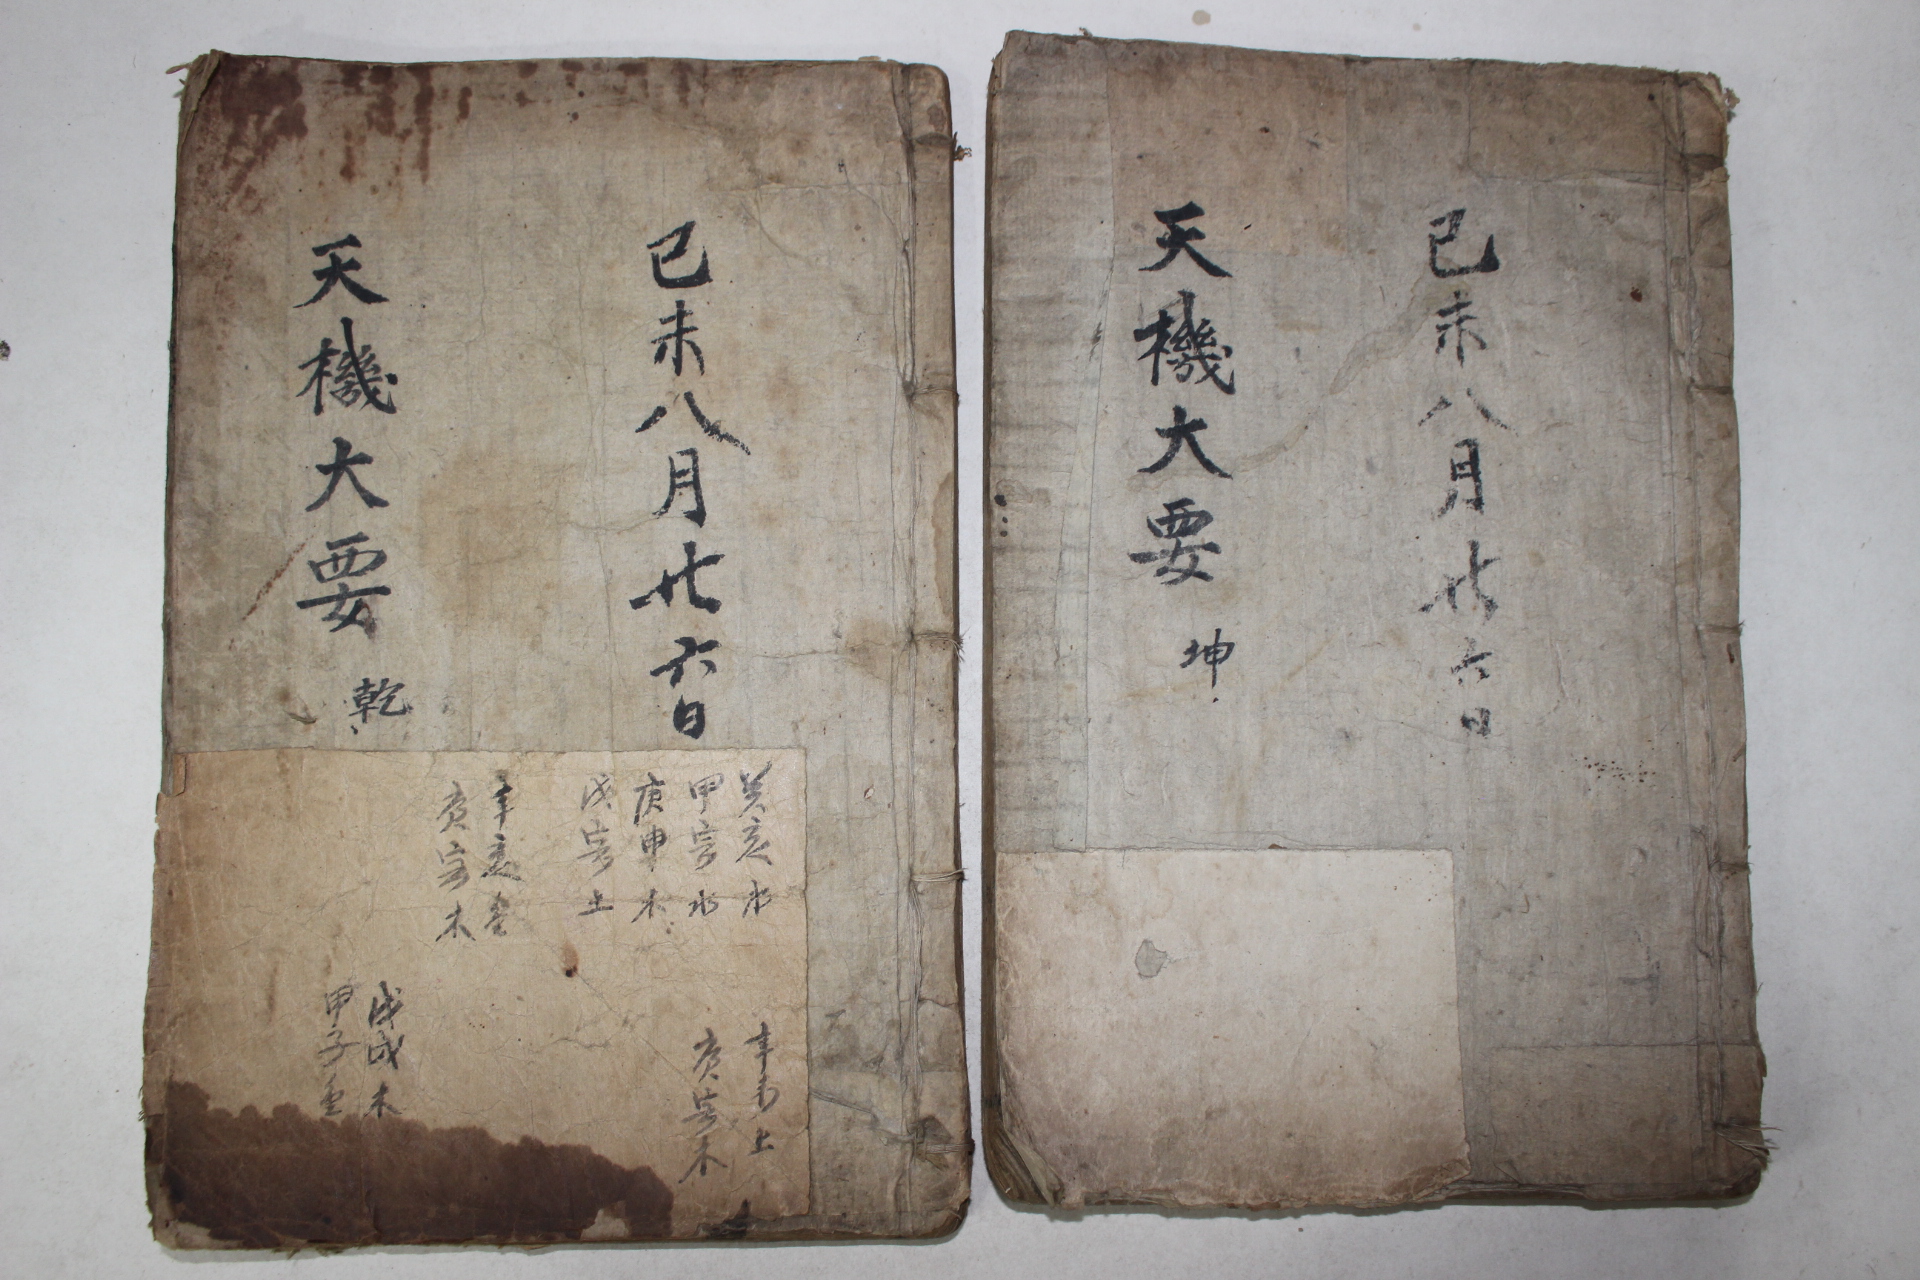 己未八月廿六日
天機大要 乾
癸亥水
甲寅水
庚申木
戊寅土
辛亥金
庚寅木
辛未土
庚寅木
戊戌木
甲子金
己未八月廿六日
天機大要 坤